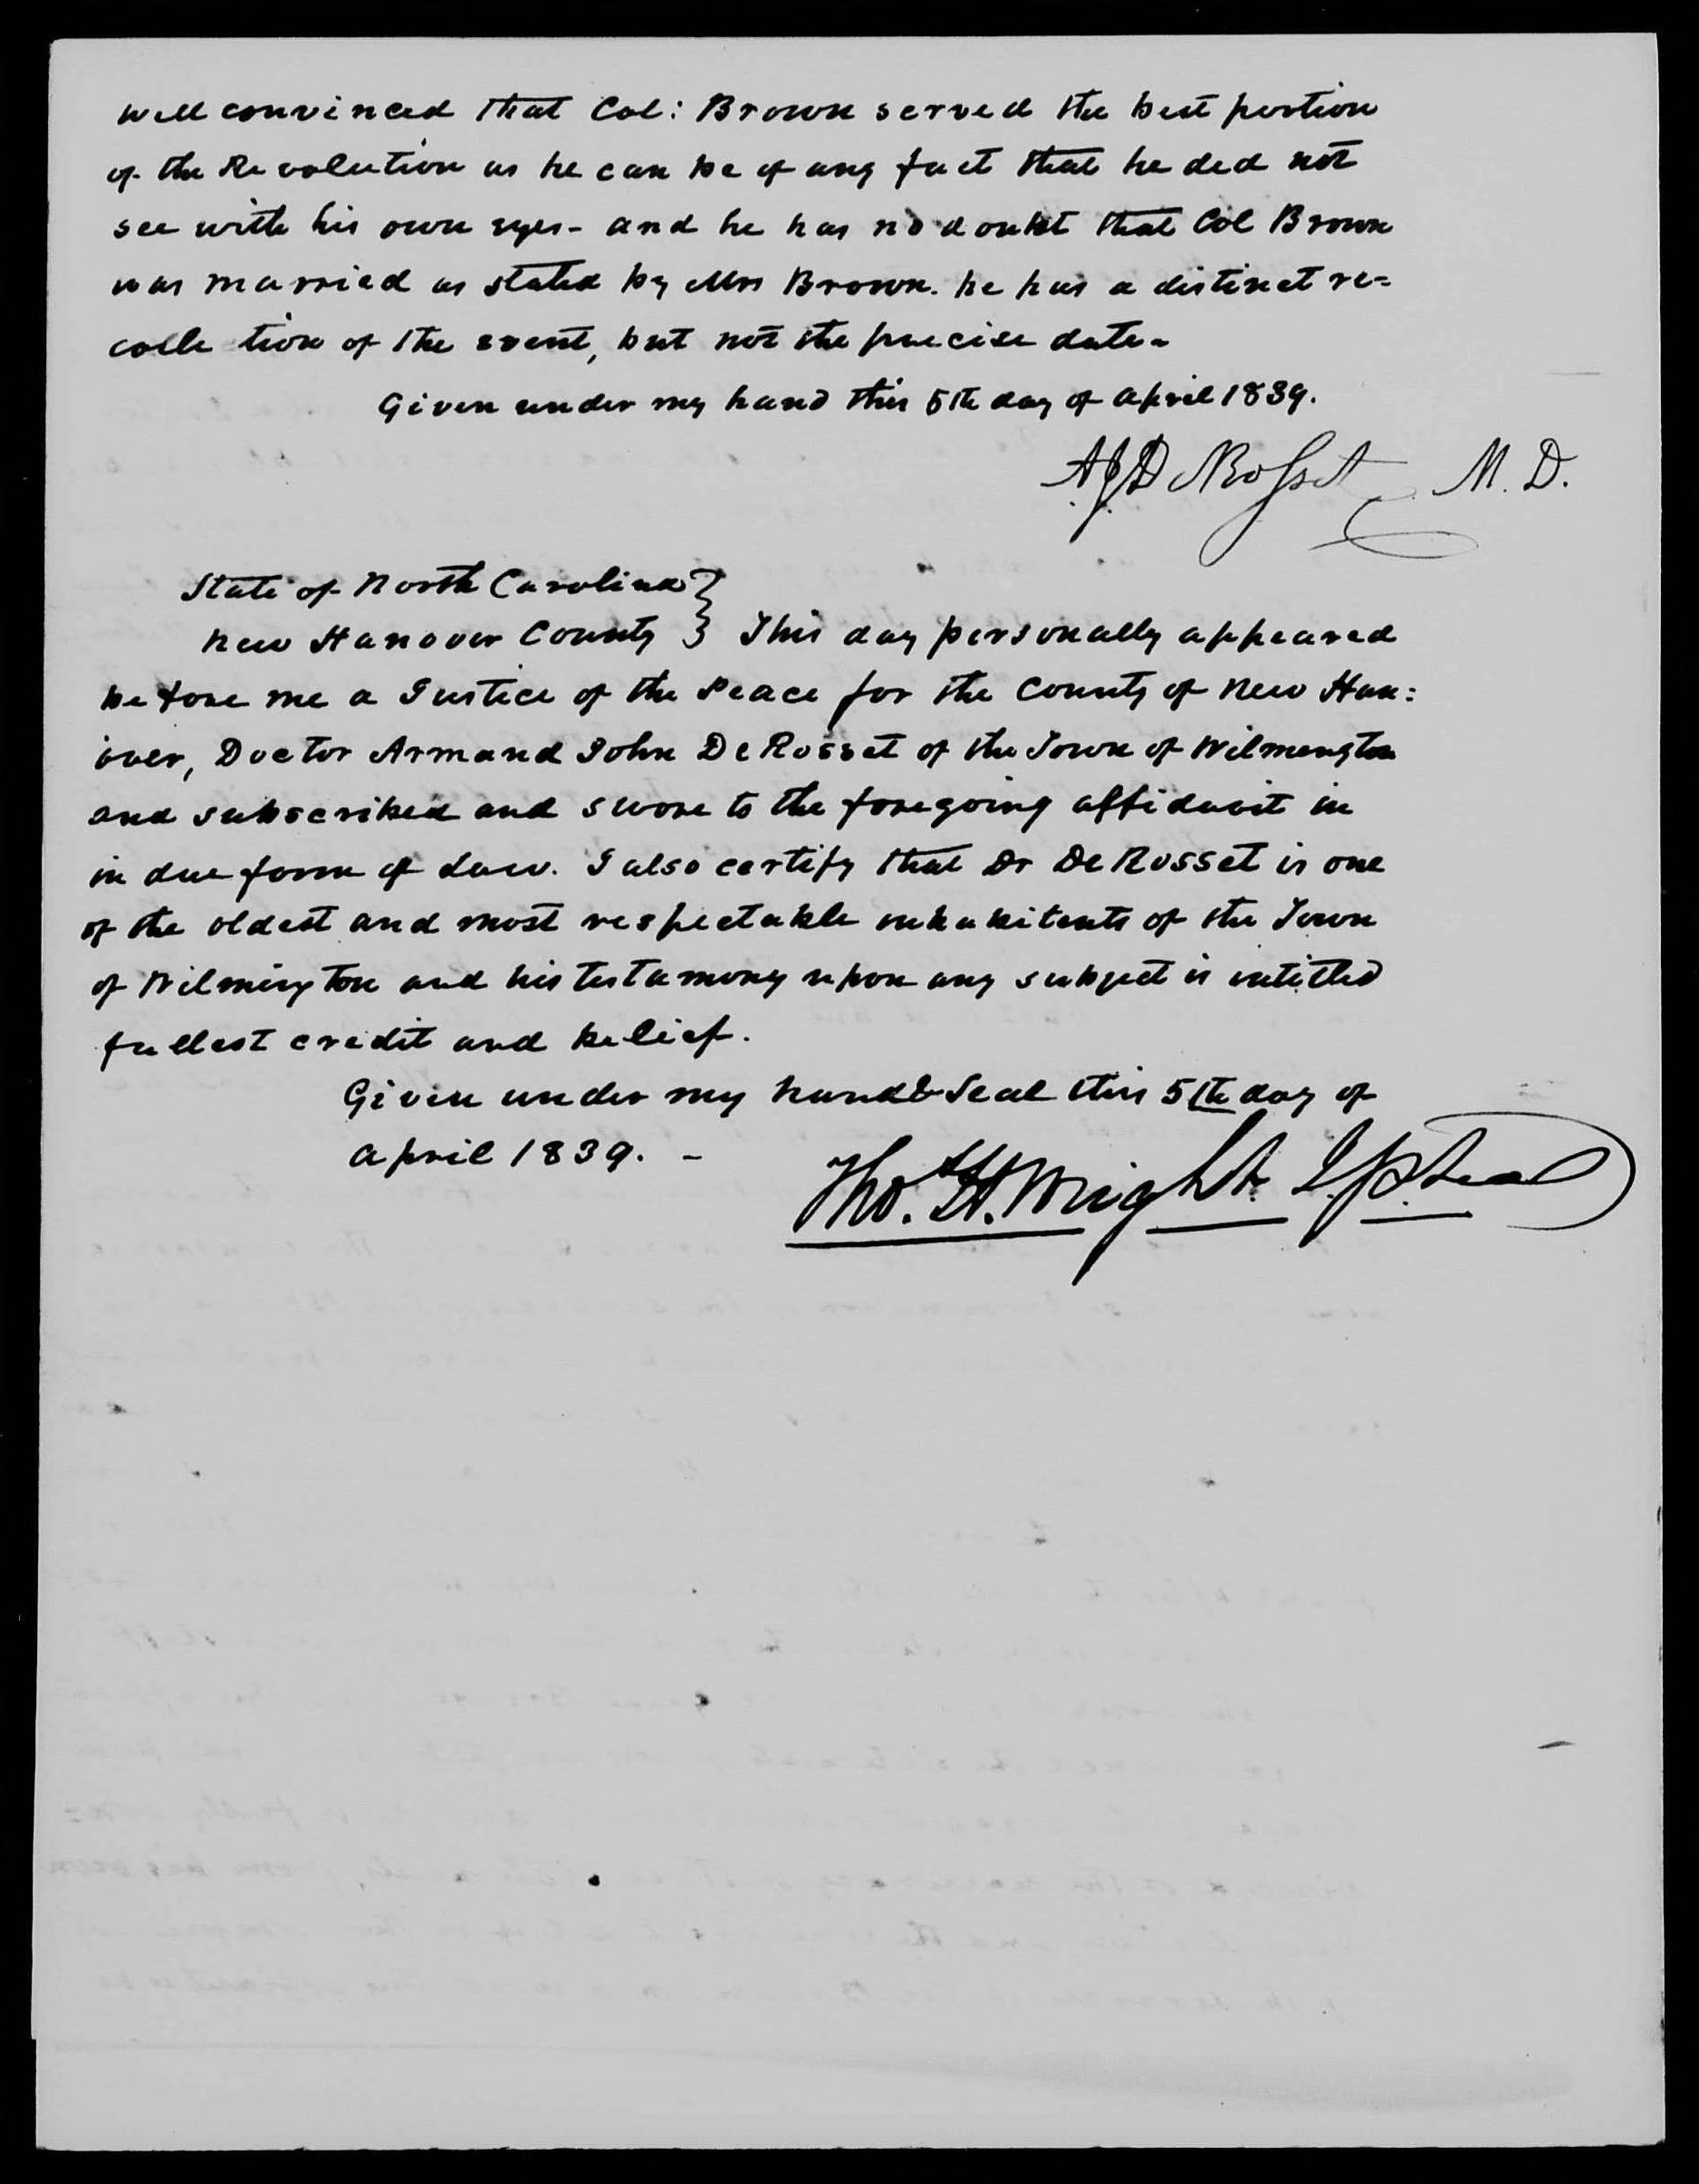 well convinced that Col: Brown served the best portion
of the Revolution as he can be of any fact that he ded not
see with his own eyes - and he has no doubt that Col Brown
was married as stated by Mrs Brown. he has a distinct re=
collection of the event, but not the precise date -
Given under my hand this 5th day of April 1839.
A.J. DeRosset M. D.
State of North Carolina }
New Hanover County } This day personally appeared
before me a Justice of the Peace for the County of New Han:
over, Doctor Armand John DeRosset of the Town of Wilmengton
and subscribed and swore to the foregoing affidavit in
in due form of Law. I also certify that Dr DeRosset is one
of the oldest and most respectable inhabitents of the Town
of Wilmington and his testamony upon any subject is intitled
fullest credit and belief.
Given under my hand & Seal this 5th day of
April 1839. -
Tho. H. Wright J.P. Seal